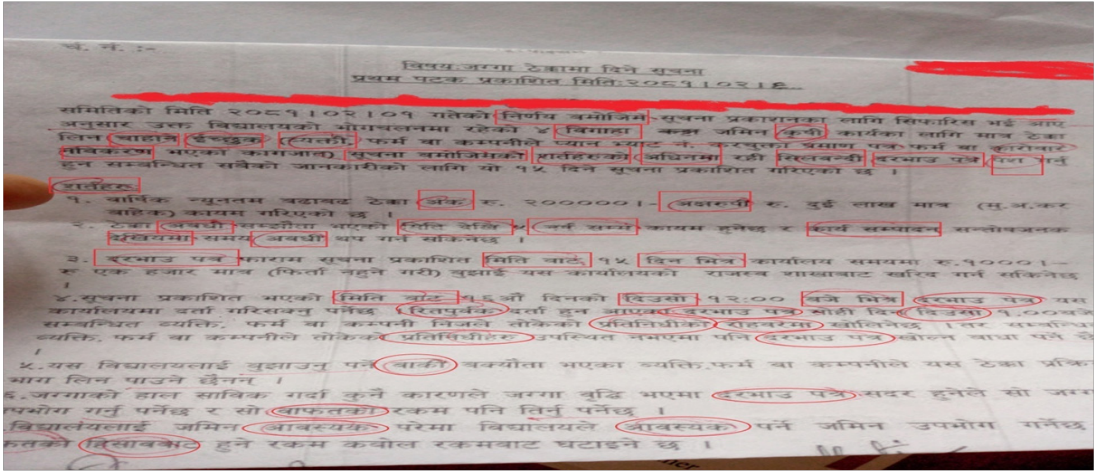 च. नं. :-
विषय:जग्गा ठेक्कामा दिने सूचना
प्रथम पटक प्रकाशित मिति:२०८१।०२।६
समितिको मिति २०८१।०२।०१ गतेको निर्णय बमोजिम सूचना प्रकाशनका लागि सिफारिस भई आए
अनुसार उक्त विद्यालयको भोगचलनमा रहेको ४ बिगाहा जमिन कृषी कार्यका लागि मात्र ठेक्का
लिन चाहाने ईच्छुक फर्म वा कम्पनीले प्यान भ्याट नं. करचुक्ता प्रमाण पत्र फर्म वा कारोवार
नविकरण भएको कागजात) सूचना बमोजिमको शर्तहरुको अधिनमा रही सिलबन्दी दरभाउ पत्र पेश गर्नु
हुन सम्बन्धित सबैको जानकारीको लागि यो १५ दिने सूचना प्रकाशित गरिएको छ ।
शर्तहरु
१. वार्षिक न्यूनतम बढाबढ ठेक्का अंक रु. २०००००।- अक्षरुपी रु. दुई लाख मात्र (मु.अ.कर
बाहेक) कायम गरिएको छ ।
२. ठेक्का अवधी सम्झौता भएको मिति देखि कायम हुनेछ र कार्य सम्पादन सन्तोषजनक
देखिएमा समय अवधी थप गर्न सकिनछ ।
३. दरभाउ पत्र फाराम सूचना प्रकाशित मिति बाट १५ दिन भित्र कार्यालय समयमा रु.१०००।-
रु एक हजार मात्र (फिर्ता नहुने गरी) बुझाई यस कार्यालयको राजस्व शाखाबाट खरिद गर्न सकिनेछ
।
४.सूचना प्रकाशित भएको मिति बाट १६औं दिनको दिउसो १२:०० बजे भित्र दरभाउ पत्र यस
कार्यालयमा दर्ता गरिसक्नु पर्नेछ । रितपुर्वक दर्ता हुन आएका दरभाउ पत्र सोही दिन दिउसो १.००बजे
सम्बन्धित व्यक्ति. फर्म वा कम्पनी निजले तोकेको प्रतिनिधीको रोहवरमा खोलिनेछ । तर सम्बन्धित
व्यक्ति. फर्म वा कम्पनीले तोकेको प्रतिनिधीहरु उपस्थित नभएमा पनि दरभाउ पत्र खोल्न बाधा पर्ने छै
।
५.यस विद्यालयलाई बुझाउनु पर्ने बाकी बक्यौता भएका व्यक्ति.फर्म वा कम्पनीले यस ठेक्का प्रक्रि
भाग लिन पाउने छैनन् ।
६.जग्गाको हाल साविक गर्दा कुनै कारणले जग्गा बृद्धि भएमा दरभाउ पत्र सदर हुनेले सो जग्ग
उपभोग गर्नु पर्नेछ र सो बाफतको रकम पनि तिर्नु पर्नेछ ।
विद्यालयलाई जमिन आवस्यक परेमा विद्यालयले आवस्यक पर्ने जमिन उपभोग गर्नेछ
हिसाबबाट हुने रकम कबोल रकमबाट घटाइने छ ।